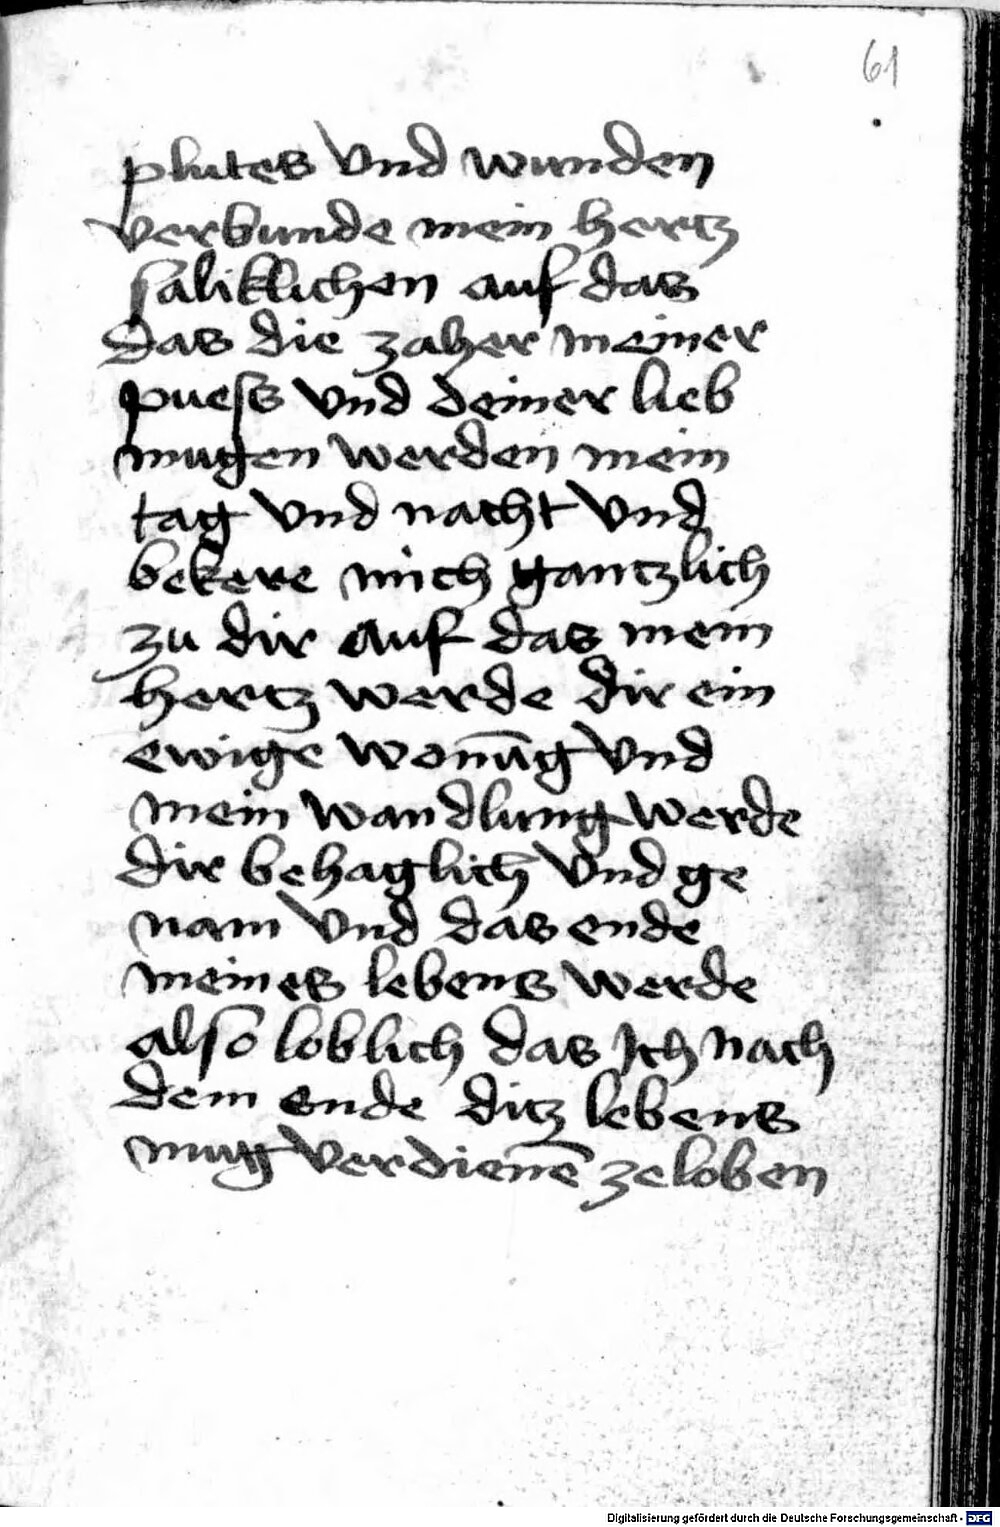 61
plutes vnd wunden
verbunde mein hertz
saliklichen auf das
das die zaher meiner
puess vnd deiner lieb
mugen werden mein
tag vnd nacht vnd
bekere mich gantzlich
zu dir auf das mein
hertz werde dir ein
ewige wonūg vnd
mein wandlung werde
dir behaglich vnd ge
nam vnd das ende
meines lebens werde
also loblich das Ich nach
dem ende ditz lebens
mug verdienē ze loben
Digitalisierung gefördert durch die Deutsche Forschungsgemeinschaft - DFG